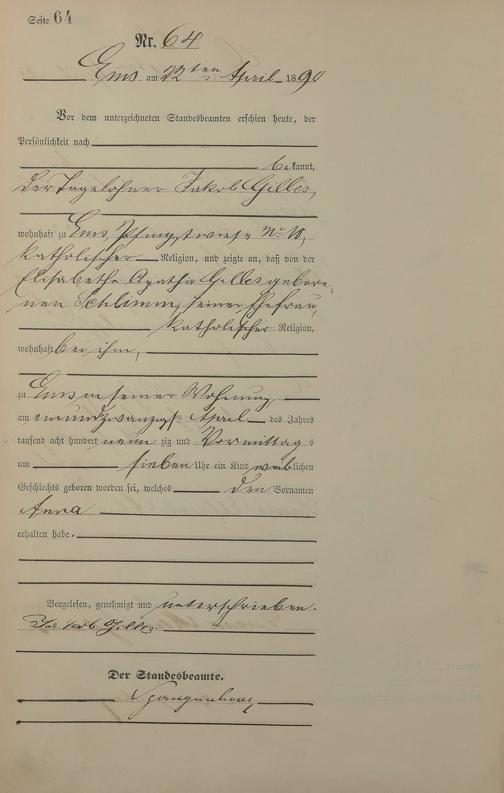 Seite 64
Nr. 64
Ems am 22ten April 1890
Vor dem unterzeichneten Standesbeamten erschien heute, der
Persönlichkeit nach
bekannt,
der Tagelöhner Jakob Gilles,
wohnhaft zu Ems, Pfingstwiese No
katholischer Religion, und zeigte an, daß von der
Elisabetha Agatha Gilles gebore-
nen Schlimm, seiner Ehefrau,
katholischer Religion,
wohnhaft bei ihm,
zu Ems in seiner Wohnung,
am einundzwanzigsten April des Jahres
tausend acht hundert neunzig und Vormittags
um sieben Uhr ein Kind weiblichen
Geschlechts geboren worden sei, welches den Vornamen
Anna
erhalten habe.
Vorgelesen, genehmigt und unterschrieben.
Jakob Gilles
Der Standesbeamte.